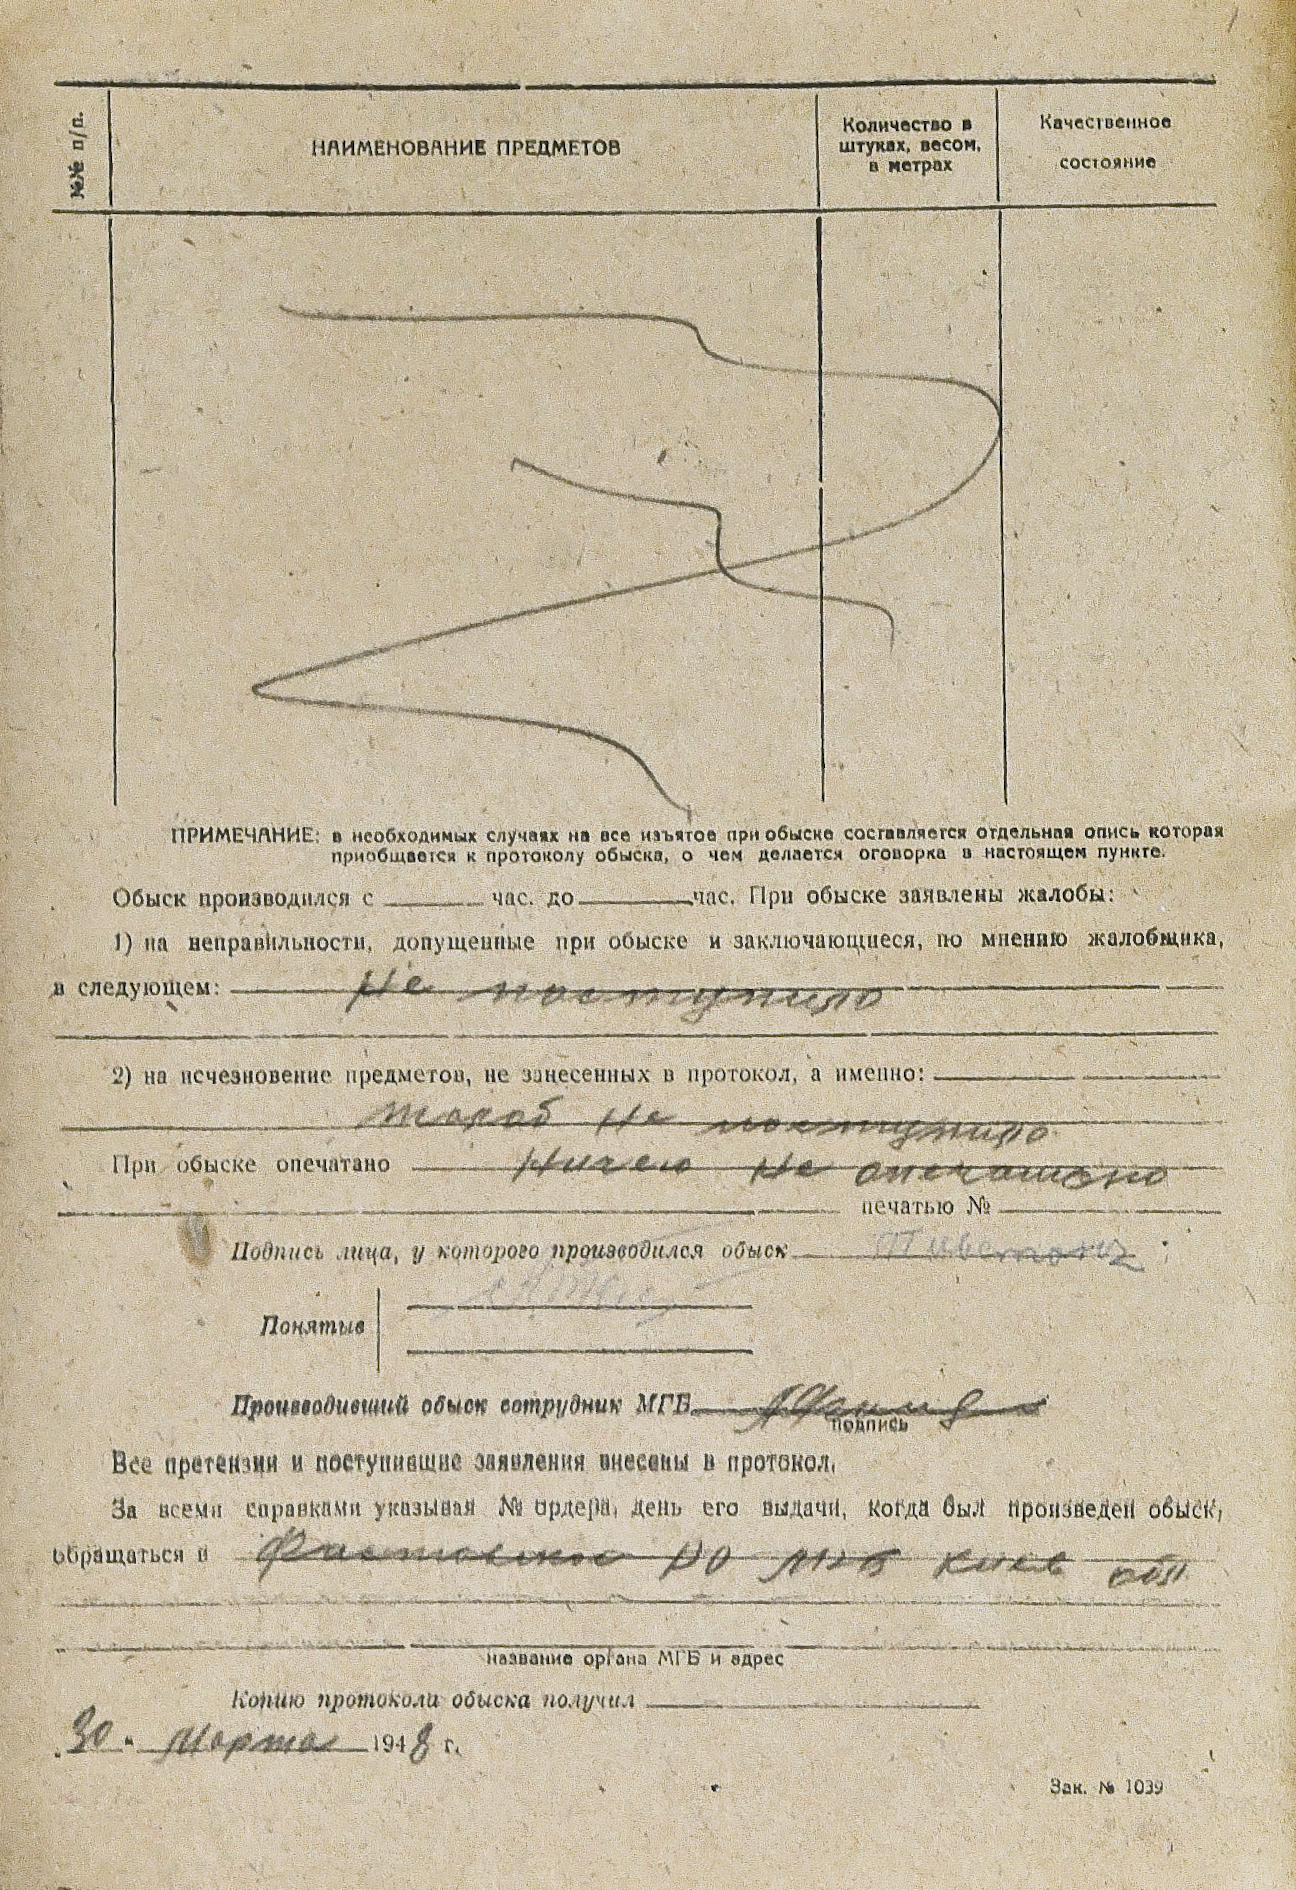 №№ п/п.
НАИМЕНОВАНИЕ ПРЕДМЕТОВ
Количество в
штуках, весом,
в метрах
Качественное
состояние
ПРИМЕЧАНИЕ: в необходимых случаях на все изъятое при обыске составляется отдельная опись которая
приобщается к протоколу обыска, о чем делается оговорка в настоящем пункте.
Обыск производился с ______ час. до ______ час. При обыске заявлены жалобы:
1) на неправильности, допущенные при обыске и заключающиеся, по мнению жалобщика,
в следующем: Не поступило
2) на исчезновение предметов, не занесенных в протокол, а именно:
жалоб не поступило
При обыске опечатано Ничего не опечатано
печатью №
Подпись лица, у которого производился обыск
Понятые
Производивший обыск сотрудник МГБ
подпись
Все претензии и поступившие заявления внесены в протокол.
За всеми справками указывая № ордера, день его выдачи, когда был произведен обыск,
обращаться в Фастовское РО МГБ Киев обл
название органа МГБ и адрес
Копию протокола обыска получил
„30“ Марта 1948 г.
Зак. № 1039